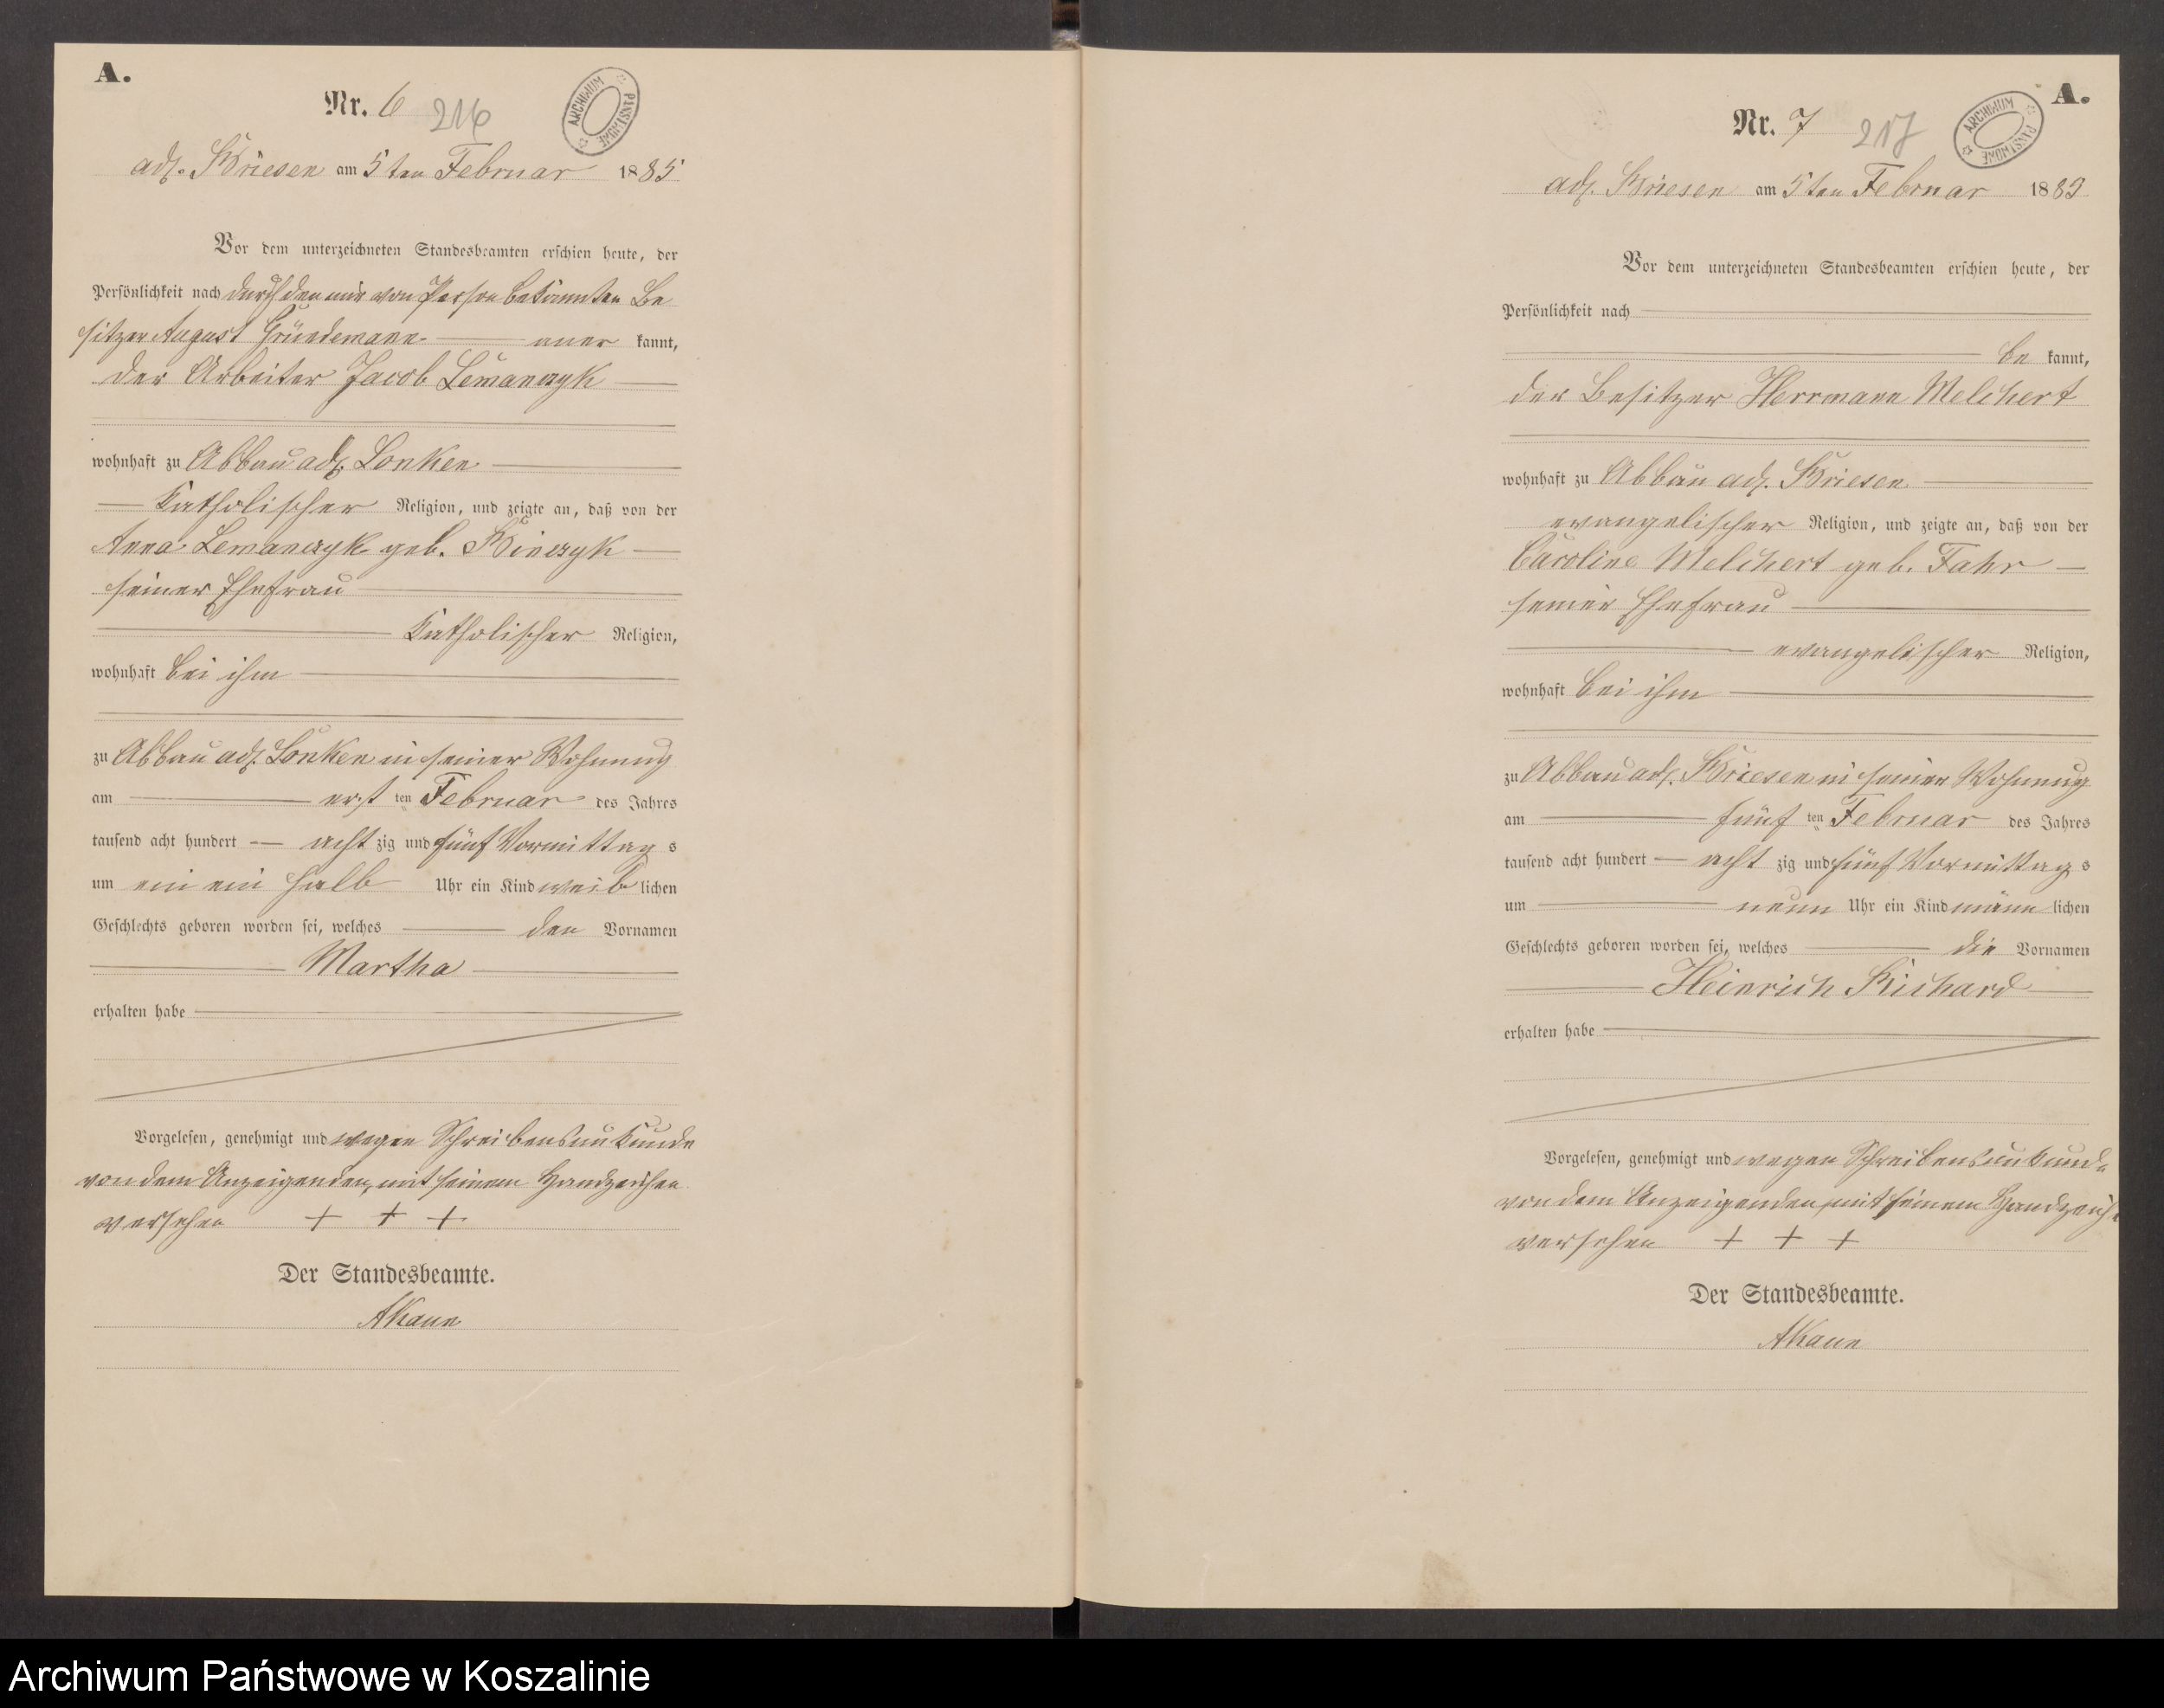 A.
Nr. 6 216
ARCHIWUM PAŃSTWOWE
adl. Briesen am 5ten Februar 1885
Vor dem unterzeichneten Standesbeamten erschien heute, der
Persönlichkeit nach durch den mir von Person bekannten Be
sitzer August Gründemann aner kannt,
der Arbeiter Jacob Lemanczyk
wohnhaft zu Abbau adl. Lonken
Katholischer Religion, und zeigte an, daß von der
Anna Lemanczyk geb.
seiner Ehefrau
Katholischer Religion,
wohnhaft bei ihm
zu Abbau adl. Lonken in seiner Wohnung
am erst ten Februar des Jahres
tausend acht hundert acht zig und fünf Vormittag s
um ein ein halb Uhr ein Kind weib lichen
Geschlechts geboren worden sei, welches den Vornamen
Martha
erhalten habe
Vorgelesen, genehmigt und wegen Schreibensunkunde
von dem Anzeigenden, mit seinem Handzeichen
versehen + + +
Der Standesbeamte.
A.
Nr. 7 217
ARCHIWUM PAŃSTWOWE
adl. Briesen am 5ten Februar 1885
Vor dem unterzeichneten Standesbeamten erschien heute, der
Persönlichkeit nach
be kannt,
der Besitzer Herrmann Melchert
wohnhaft zu Abbau adl. Briesen
evangelischer Religion, und zeigte an, daß von der
Caroline Melchert geb. Fahr
seiner Ehefrau
evangelischer Religion,
wohnhaft bei ihm
zu Abbau adl. Briesen in seiner Wohnung
am fünf ten Februar des Jahres
tausend acht hundert acht zig und fünf Vormittag s
um neun Uhr ein Kind männ lichen
Geschlechts geboren worden sei, welches die Vornamen
Heinrich Richard
erhalten habe
Vorgelesen, genehmigt und wegen Schreibensunkunde
von dem Anzeigenden, mit seinem Handzeich
versehen + + +
Der Standesbeamte.
Archiwum Państwowe w Koszalinie